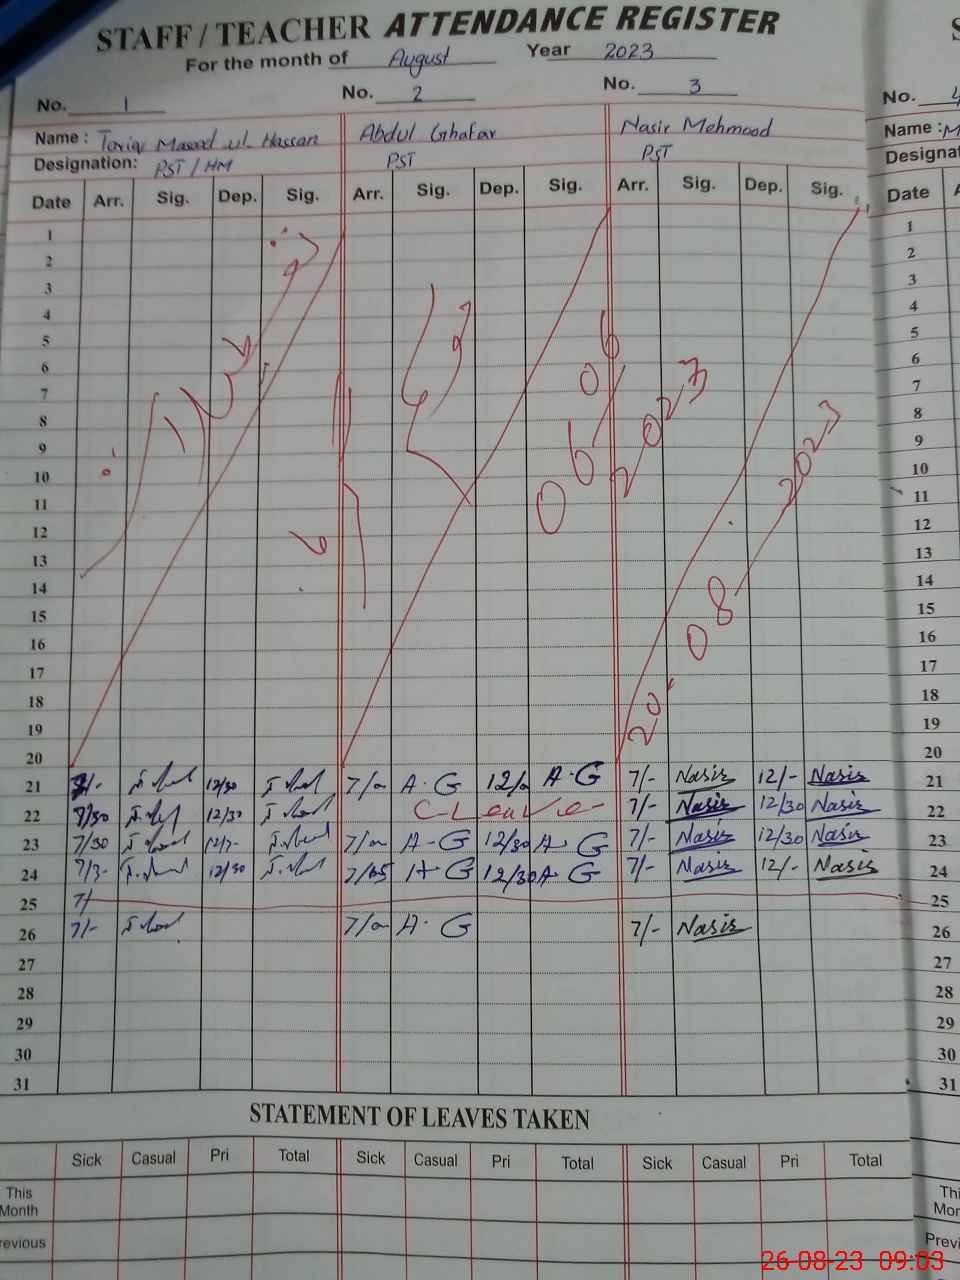 STAFF / TEACHER ATTENDANCE REGISTER
For the month of August Year 2023
No. 1 No. 2 No. 3 No. 4
Name : Tariq Masood ul Hassan Abdul Ghafar Nasir Mehmood Name : M
Designation: PST / HM PST PST Designat
Date Arr. Sig. Dep. Sig. Arr. Sig. Dep. Sig. Arr. Sig. Dep. Sig. Date A
1 1
2 2
3 3
4 4
5 5
6 6
7 7
8 8
9 9
10 10
11 11
12 12
13 13
14 14
15 15
16 16
17 17
18 18
19 19
20 20
06 06 2023
20 08 2023
21 7/- 12/30 7/- A.G 12/- A.G 7/- Nasir 12/- Nasir 21
22 7/30 12/30 C-Leave- 7/- Nasir 12/30 Nasir 22
23 7/30 7/- A-G 12/30 A.G 7/- Nasir 12/30 Nasir 23
24 7/3- 12/30 7/05 A-G 12/30 A-G 7/- Nasir 12/- Nasir 24
25 7/ 25
26 7/- 7/- A.G 7/- Nasir 26
27 27
28 28
29 29
30 30
31 31
STATEMENT OF LEAVES TAKEN
Sick Casual Pri Total Sick Casual Pri Total Sick Casual Pri Total
This Month Thi Mor
revious Previ
26-08-23 09:03